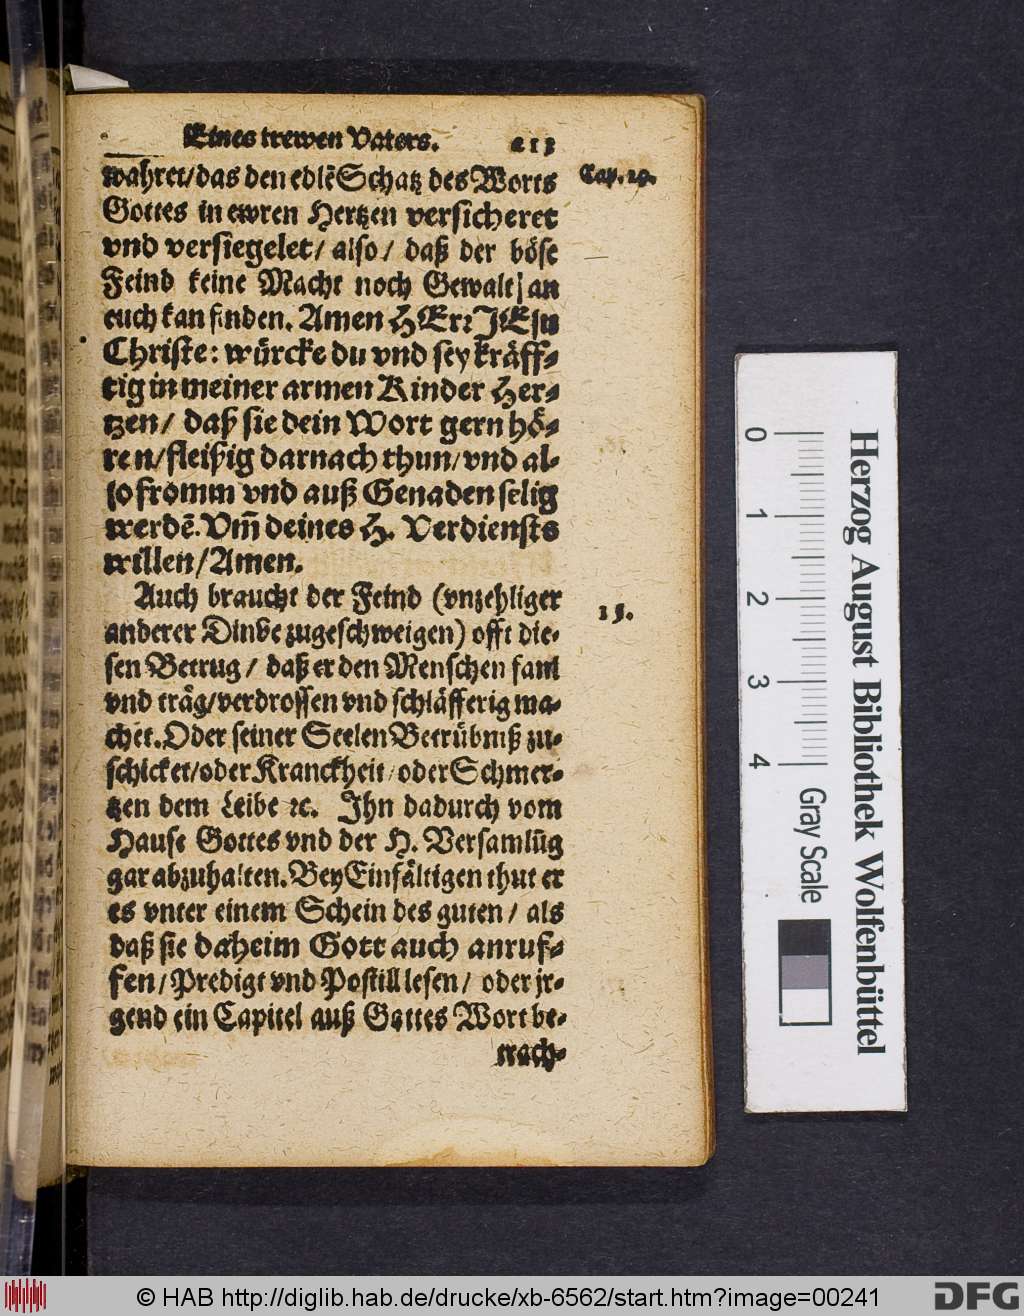 Eines trewen Vaters. 213
wahret/das den edlẽ Schatz des Worts
Cap. 29.
Gottes in ewren Hertzen versicheret
vnd versiegelet/ also/ daß der böse
Feind keine Macht noch Gewalt an
euch kan finden. Amen HErr JEsu
Christe: würcke du vnd sey kräff-
tig in meiner armen Kinder Her-
tzen/ daß sie dein Wort gern hö-
ren/fleißig darnach thun/vnd al-
so fromm vnd auß Genaden selig
werdẽ. Vm̃ deines H. Verdiensts
willen/Amen.
Auch braucht der Feind (vnzehliger
15.
anderer Dinge zugeschweigen) offt die-
sen Betrug/ daß er den Menschen faul
vnd träg/verdrossen vnd schläfferig ma-
chet. Oder seiner Seelen Betrübniß zu-
schicket/oder Kranckheit/oder Schmer-
tzen dem Leibe ꝛc. Ihn dadurch vom
Hause Gottes vnd der H. Versamlũg
gar abzuhalten. Bey Einfältigen thut er
es vnter einem Schein des guten/ als
daß sie daheim Gott auch anruf-
fen/Predigt vnd Postill lesen/ oder jr-
gend ein Capitel auß Gottes Wort be-
trach-
Herzog August Bibliothek Wolfenbüttel
0 1 2 3 4 Gray Scale
© HAB http://diglib.hab.de/drucke/xb-6562/start.htm?image=00241
DFG